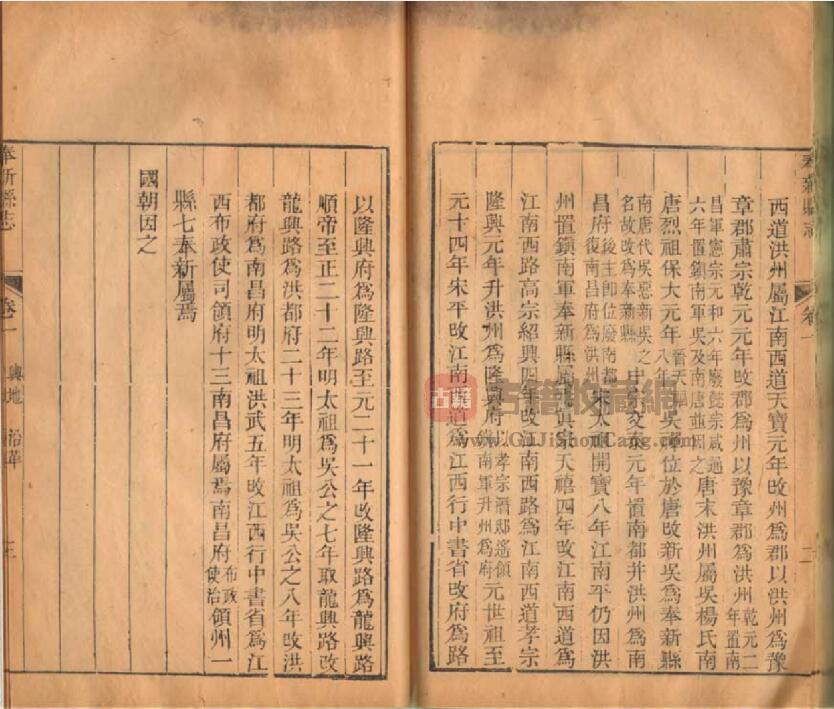 西道洪州屬江南西道天寶元年改州爲郡以洪州爲豫
章郡肅宗乾元元年改郡爲州以豫章郡爲洪州乾元二年置南
昌軍憲宗元和六年廢懿宗咸通六年置鎮南軍吳及南唐並因之唐末洪州屬吳楊氏南
唐烈祖保大元年晉天八年吳禪位於唐改新吳爲奉新縣
南唐代吳惡新吳之名故改爲奉新縣中元年置南都并洪州爲南
昌府後主卽位廢南都復南昌府爲洪州宋太祖開寶八年江南平仍因洪
州置鎮南軍奉新縣屬焉眞宗天禧四年改江南西道爲
江南西路高宗紹興四年改江南西路爲江南西道孝宗
隆興元年升洪州爲隆興府以孝宗潛邸遙領鎮南軍升州爲府元世祖至
元十四年宋平改江南西道爲江西行中書省改府爲路
奉新縣志
卷一
二
以隆興府爲隆興路至元二十一年改隆興路爲龍興路
順帝至正二十二年明太祖爲吳公之七年取龍興路改
龍興路爲洪都府二十三年明太祖爲吳公之八年改洪
都府爲南昌府明太祖洪武五年改江西行中書省爲江
西布政使司領府十三南昌府屬焉南昌府布政使治領州一
縣七奉新屬焉
國朝因之
奉新縣志
卷一
輿地
沿革
三
古籍收藏網
www.GuJiShouCang.com